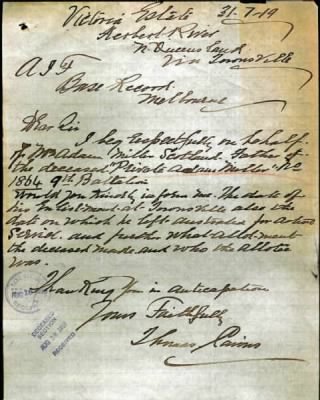 Victoria Estate 31-7-19
Herbert River
N. Queensland
Via Townsville
A.I.F
Base Record
Melbourne
Dear Sir
I beg respectfully on behalf
of Mr Adam Miller Scotland. Father of
the deceased "Private Adam Miller" No
1864 9th Battalion
Would you Kindly inform me. The date of
his Enlistment at Townsville also the
date on which he left Australia for Active
Service. and further what Allotment
the deceased made and who the allotee
was.
Thanking You in anticipation
Yours Faithfully
Thomas Cairns
RECEIVED